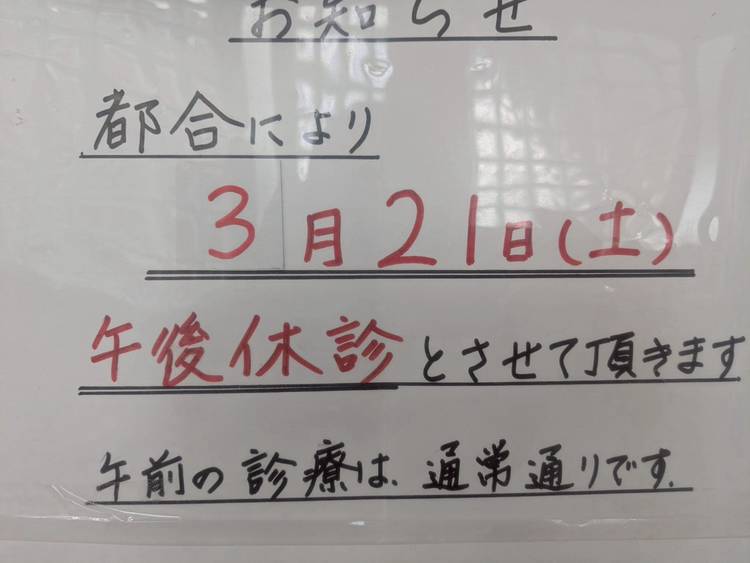 お知らせ
都合により
3月21日(土)
午後休診とさせて頂きます
午前の診療は、通常通りです.